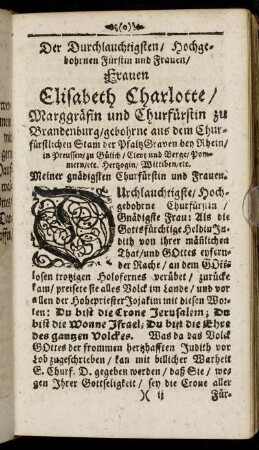 (o)
Der Durchlauchtigsten / Hochge-
bohrnen Fürstin und Frauen /
Frauen
Elisabeth Charlotte /
Marggräfin und Churfürstin zu
Brandenburg / gebohrne aus dem Chur-
fürstlichen Stam der Pfaltz Graven bey Rhein /
in Preussen / zu Gülich / Cleve und Berge / Pom-
mern / etc. Hertzogin / Wittiben / etc.
Meiner gnädigsten Churfürstin und Frauen.
DUrchlauchtigste / Hoch-
gebohrne Churfürstin /
Gnädigste Frau: Als die
Gottsfürchtige Heldin Ju-
dith von ihrer mänlichen
That / und GOttes eyfern-
der Rache / an dem GOtt-
losen trotzigen Holofernes verübet / zurücke
kam / preisete sie alles Volck im Lande / und vor
allen der Hohepriester Jojakim mit diesen Wor-
ten: Du bist die Crone Jerusalem; Du
bist die Wonne Israel; Du bist die Ehre
des ganzen Volckes. Was da das Volck
GOttes der frommen hertzhafften Judith vor
Lob zugeschrieben / kan mit billicher Warheit
E. Churf. D. gegeben werden / daß Sie / we-
gen Ihrer Gottseligkeit / sey die Crone aller
)( ij Für-